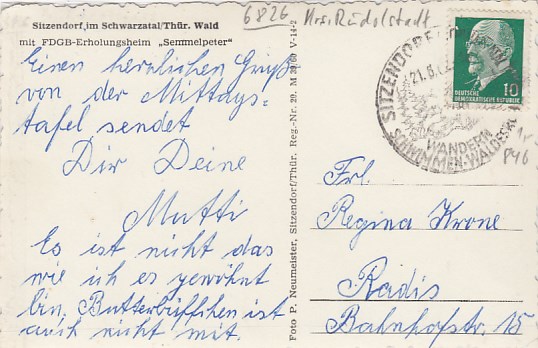 Sitzendorf im Schwarzatal/Thür. Wald
mit FDGB-Erholungsheim „Semmelpeter“
6826 Krs. Rudolstadt
Einen herzlichen Gruß
von der Mittags-
tafel sendet
Dir Deine
Mutti
Es ist nicht das
wie ich es gewöhnt
bin. Butterbüffchen ist
auch nicht mit.
Foto P. Neumeister, Sitzendorf/Thür. Reg.-Nr. 20. M 39/60 V-14-
SITZENDORF
21.6.
WANDERN
SCHWIMMEN-WALDESR
10
DEUTSCHE
DEMOKRATISCHE REPUBLIK
P46
Frl.
Regina Krone
Radis
Bahnhofstr. 15